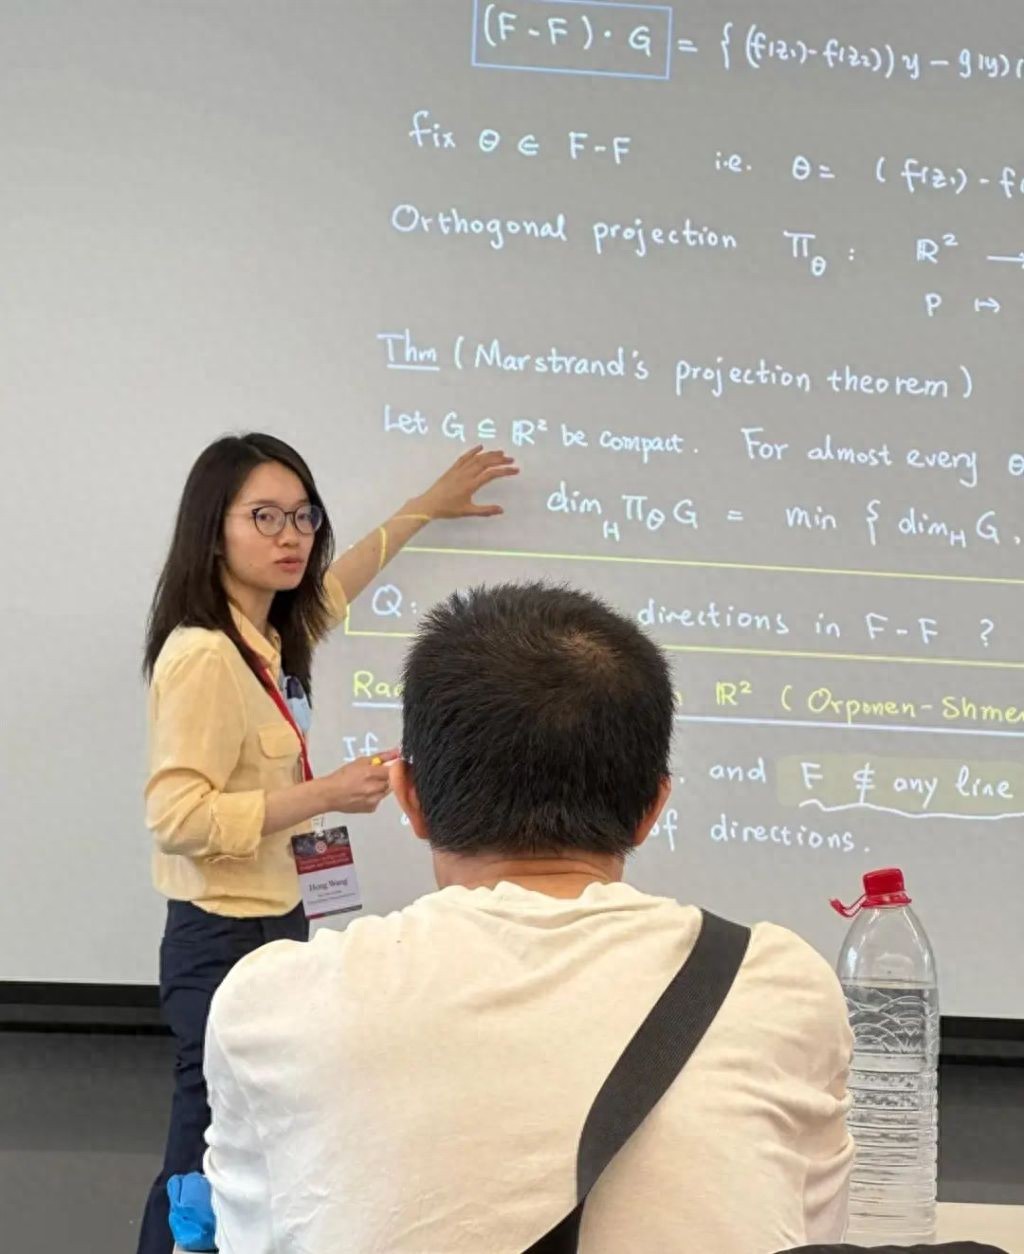 (F-F)·G = { (f(z₁)-f(z₂)) y - g(y)
fix θ ∈ F-F i.e. θ = (f(z₁)-f
Orthogonal projection π_θ : ℝ² →
p ↦
Thm (Marstrand's projection theorem)
Let G ⊆ ℝ² be compact. For almost every θ
dim_H π_θ G = min { dim_H G,
Q: directions in F-F ?
ℝ² (Orponen-Shme
If . and F ⊄ any line
of directions.
Hong Wang